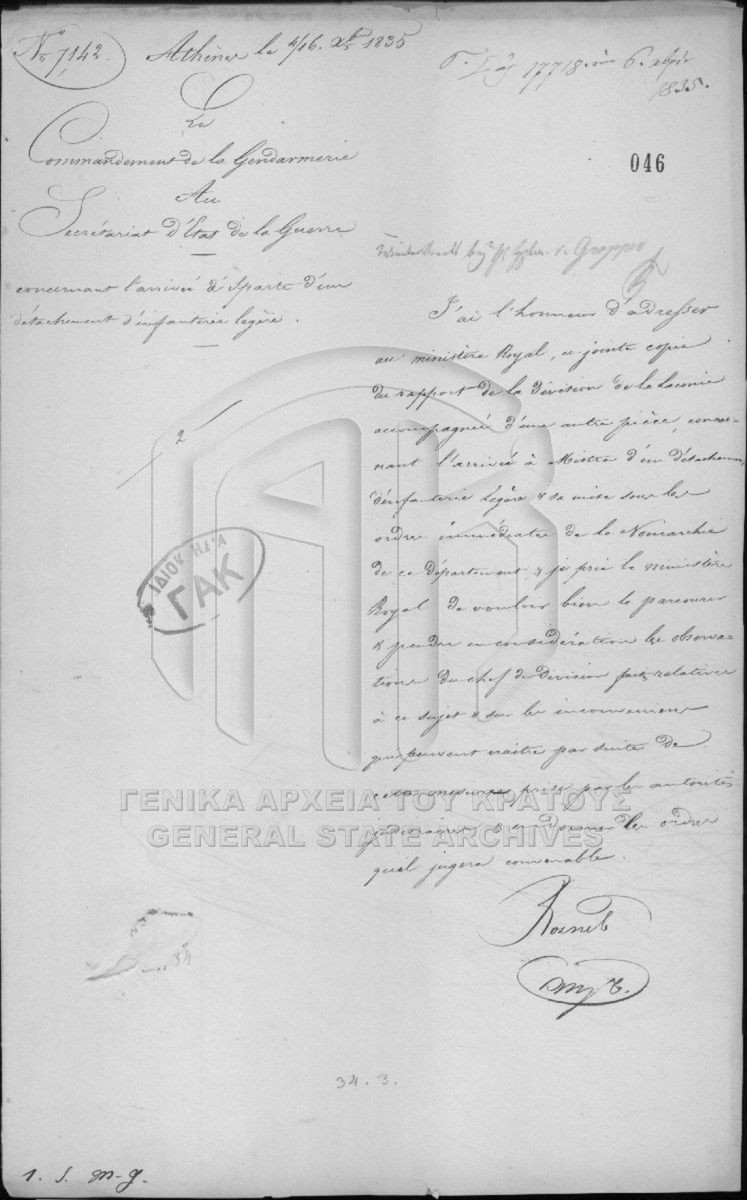 No 7,142. Athènes le 4/16. Xbre 1835
17718 6. 1835.
046
Le
Commandement de la Gendarmerie
Au
Secrétariat d'Etat de la Guerre
concernant l'arrivée à Sparte d'un
détachement d'infanterie légère.
2
J'ai l'honneur d'adresser
au ministère Royal, ci jointe copie
du rapport de la Division de la Laconie
accompagnée d'une autre pièce, concer-
nant l'arrivée à Mistra d'un détachement
d'infanterie légère & sa mise sous les
ordres immédiates de la Nomarchie
de ce département, & je prie le ministère
Royal de vouloir bien le parcourir
& prendre en considération les observa-
tions du chef de Division relatives
à ce sujet & sur les inconvenients
qui peuvent naître par suite de
cette mesure prise par les autorités
& donner les ordres
qu'il jugera convenable.
ΓΑΚ
ΓΕΝΙΚΑ ΑΡΧΕΙΑ ΤΟΥ ΚΡΑΤΟΥΣ
GENERAL STATE ARCHIVES
34
34.3.
1. S. m-g.